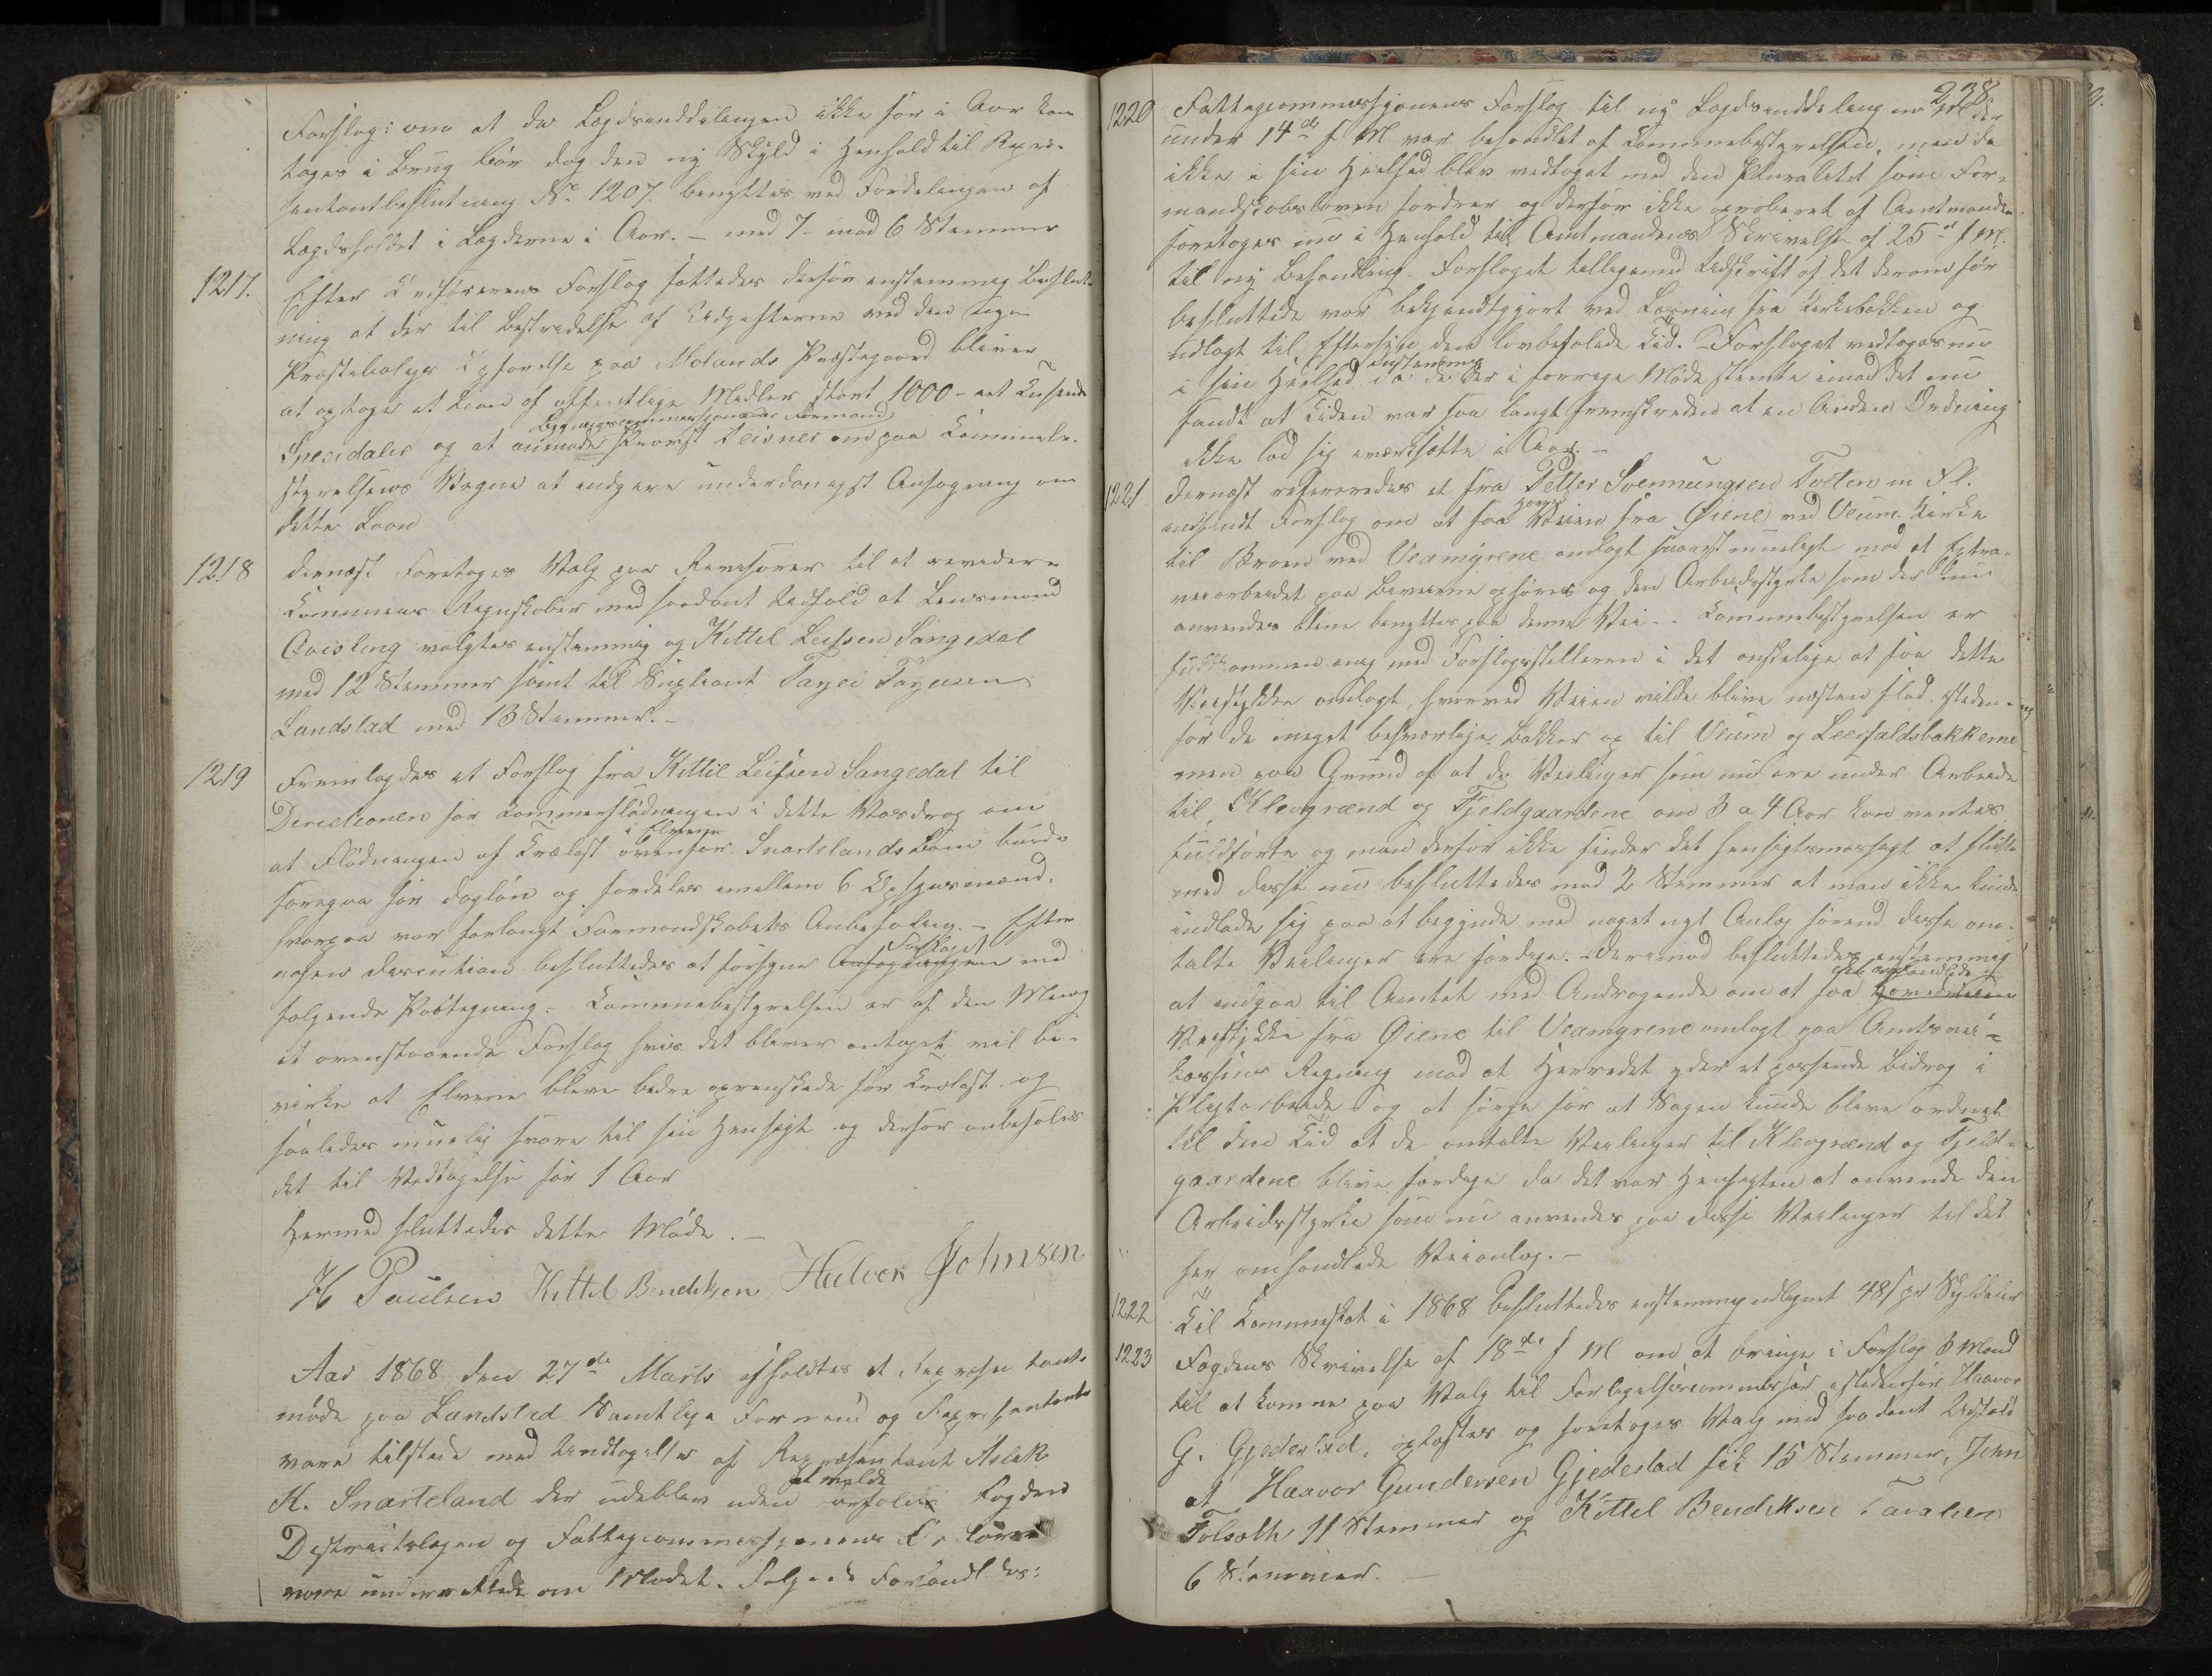 Forslag: om at da Lægdsinddelingen ikke før i Aar kan
tages i Brug bør dog den ny Skyld i Henhold til Repræ-
sentantbeslutning No 1207. benyttes ved Fordelingen af
Lægdsholdet i Lægderne i Aar. – med 7 mod 6 Stemmer
1217. Efter Ordførerens Forslag fattedes derfor enstemmig Beslut-
ning at der til Bestridelse af Udgifterne ved den
Præsteboligs Opførelse paa Molands Præstegaard bliver
at optage et Laan af offentlige Midler stort 1000 – et Tusende
Bygningscommissionens Formand
Speciedaler og at anmode Provst Leisner om paa Kommunebe-
styrelsens Vegne at indgive underdanigst Ansøgning om
dette Laan
1218 Dernæst Foretoges Valg paa Revisorer til at revidere
Kommunens Regnskaber med saadant Udfald at Lensmand
Qvisling valgtes enstemmig og Kittel Leifsen Sangedal
med 12 Stemmer samt til Supleant Tarjei Tarjeisen
Landstad med 13 Stemmer. –
1219 Fremlagdes et Forslag fra Kittil Leifsen Sangedal til
Directionen for Tømmerflødningen i dette Vasdrag om
i Elvene
at Flødningen af Trælast ovenfor Snartelands Bom burde
foregaa for Dagløn og fordeles imellem 6 Opsynsmænd,
hvorpaa var forlangt Formandskabets Anbefaling. – Efter
Forslaget
nogen Discution besluttedes at forsyne Ansøgningen med
følgende Paategning. Kommunebestyrelsen er af den Mening
at ovenstaaende Forslag hvis det bliver antaget vil be-
virke at Elvene bliver bedre oprenskede for Trælast og
saaledes muelig svare til sin Hensigt og derfor anbefales
det til Vedtagelse for 1 Aar
Hermed sluttedes dette Møde. –
H Paulsen Kittil Bendiksen Halvor Johnsen
Aar 1868 den 27de Marts afholdtes et Repræsentant-
møde paa Landstad Samtlige Formænd og Repræsentanter
vare tilstede med Undtagelse af Repræsentant Aslak
at melde
K. Snarteland der udeblev uden Forfald Fogden
Districtslægen og Fattigcommissionens Ordfører
vare underrettede om Mødet. Følgende Forhandledes:
238
1220 Fattigcommissionens Forslag til ny Lægdsinddeling
under 14de f M var behandlet af Kommunebestyrelsen, men da
ikke i sin Heelhed blev vedtaget med den Pluralitet som For-
mandskabsloven fordrer og derfor ikke aproberet af Amtmanden
foretoges nu i Henhold til Amtmandens Skrivelse af 25de f M.
til ny Behandling. Forslaget tilligemed Udskrift af det derom før
besluttede var bekjendtgjort ved Læsning fra Kirkebakken og
udlagt til Eftersyn den lovbefalede Tid. Forslaget vedtoges nu
enstemmig
i sin Heelhed da de der i forrige Møde stemte imod det nu
fandt at Tiden var saa langt fremskreden at en Anden Ordning
ikke lod sig iværksætte i Aar. –
1221 Dernæst refereredes et fra Petter Svennungsen Tveten m Fl.
Hoved
indsendt Forslag om at faa Veien fra Øiene ved Veum Kirke
til Broen ved Veamyrene omlagt snarest mueligt mod at Extra-
veiarbeidet paa Biveiene ophøres og den Arbeidsstyrke som der nu
anvendes bliver benyttet paa denne Vei. – Kommunebestyrelsen er
fuldkommen enig med Forslagsstilleren i det ønskelige at faa dette
Veistykke omlagt, hvorved Veien vilde blive næsten flad isteden-
for de meget besværlige Bakker op til Veum og Leerfaldsbakkerne
men paa Grund af at de Veilinger som nu ere under Arbeide
til Klevgrænd og Fjeldgaardene om 3 a 4 Aar kan ventes
fuldførte og man derfor ikke finder det hensigtsmæssigt at slutte
med disse nu besluttedes mod 2 Stemmer at man ikke kunde
indlade sig paa at begynde med noget nyt Anlæg førend disse om-
talte Veilinger ere færdige. Derimod besluttedes enstemmig
det omhandlede
at indgaa til Amtet med Andragende om at faa Hovedveien
Veistykke fra Øiene til Veamyrene omlagt paa Amtsvei-
kassens Regning mod at Herredet yder et passende Bidrag i
Pligtarbeide og at sørge for at Sagen kunde blive ordnet
til den Tid at de omtalte Veilinger til Klevgrænd og Fjeld-
gaardene blive færdige da det var Hensigten at anvende den
Arbeidsstyrke som nu anvendes paa disse Veilinger til det
her omhandlede Veianlæg. –
1222 Til Kommuneskat i 1868 besluttedes enstemmig udlignet 48 ß pr Skylddaler
1223 Fogdens Skrivelse af 18de f M om at bringe i Forslag 3 Mænd
til at komme paa Valg til Forligelsescommissær istedenfor Haavor
G. Gjedeslad, oplæstes og foretoges Valg med saadant Udfald
at Haavor Gundersen Gjedeslad fik 15 Stemmer, John
Folsæth 11 Stemmer og Kittel Bendiksen
6 Stemmer. –